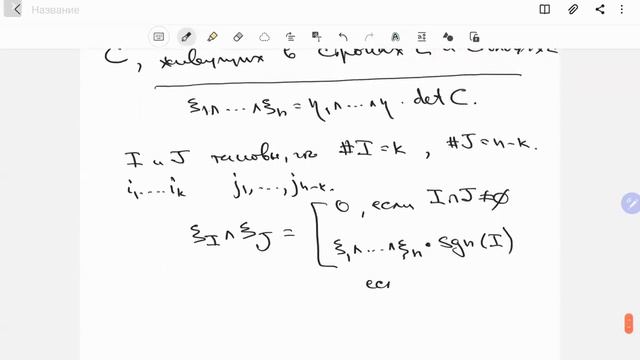 Название
C, живущих в строках
ξ₁∧...∧ξₙ = η₁∧...∧η · det C.
I и J таковы, что #I = k, #J = n-k.
i₁....iₖ j₁,...,jₙ₋ₖ.
ξ_I ∧ ξ_J = [ 0, если I∩J ≠ ∅
ξ₁∧...∧ξₙ · sgn(I)
есл